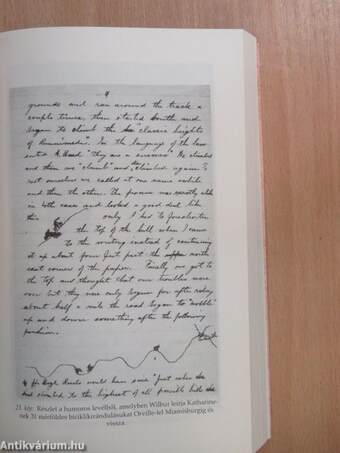 4
grounds and ran around the track a
couple times, then started South and
began to climb the classic heights
of Runnymede. In the language of the
"they are a". We climbed
and then we "clumb" and then "climbed again".
just ourselves we called at one name while
and then the other. The process was exactly alike
in both cases and looked a good deal like
this only I had to
the top of the hill when I came
to the writing instead of continuing
it up about four feet past the upper north
east corner of the paper. Finally we got to
the top and thought that our troubles were
over but they were only begun for after riding
about half a mile the road began to "wobble"
up and down something after the following
fashion.
would have some "just when she
had climbed to the highest of all possible hills she
21. kép: Részlet a humoros levélből, amelyben Wilbur leírja Katharine-
nek 31 mérföldes biciklikirándulásukat Orville-lel Miamisburgig és
vissza.
Antikvárium.hu